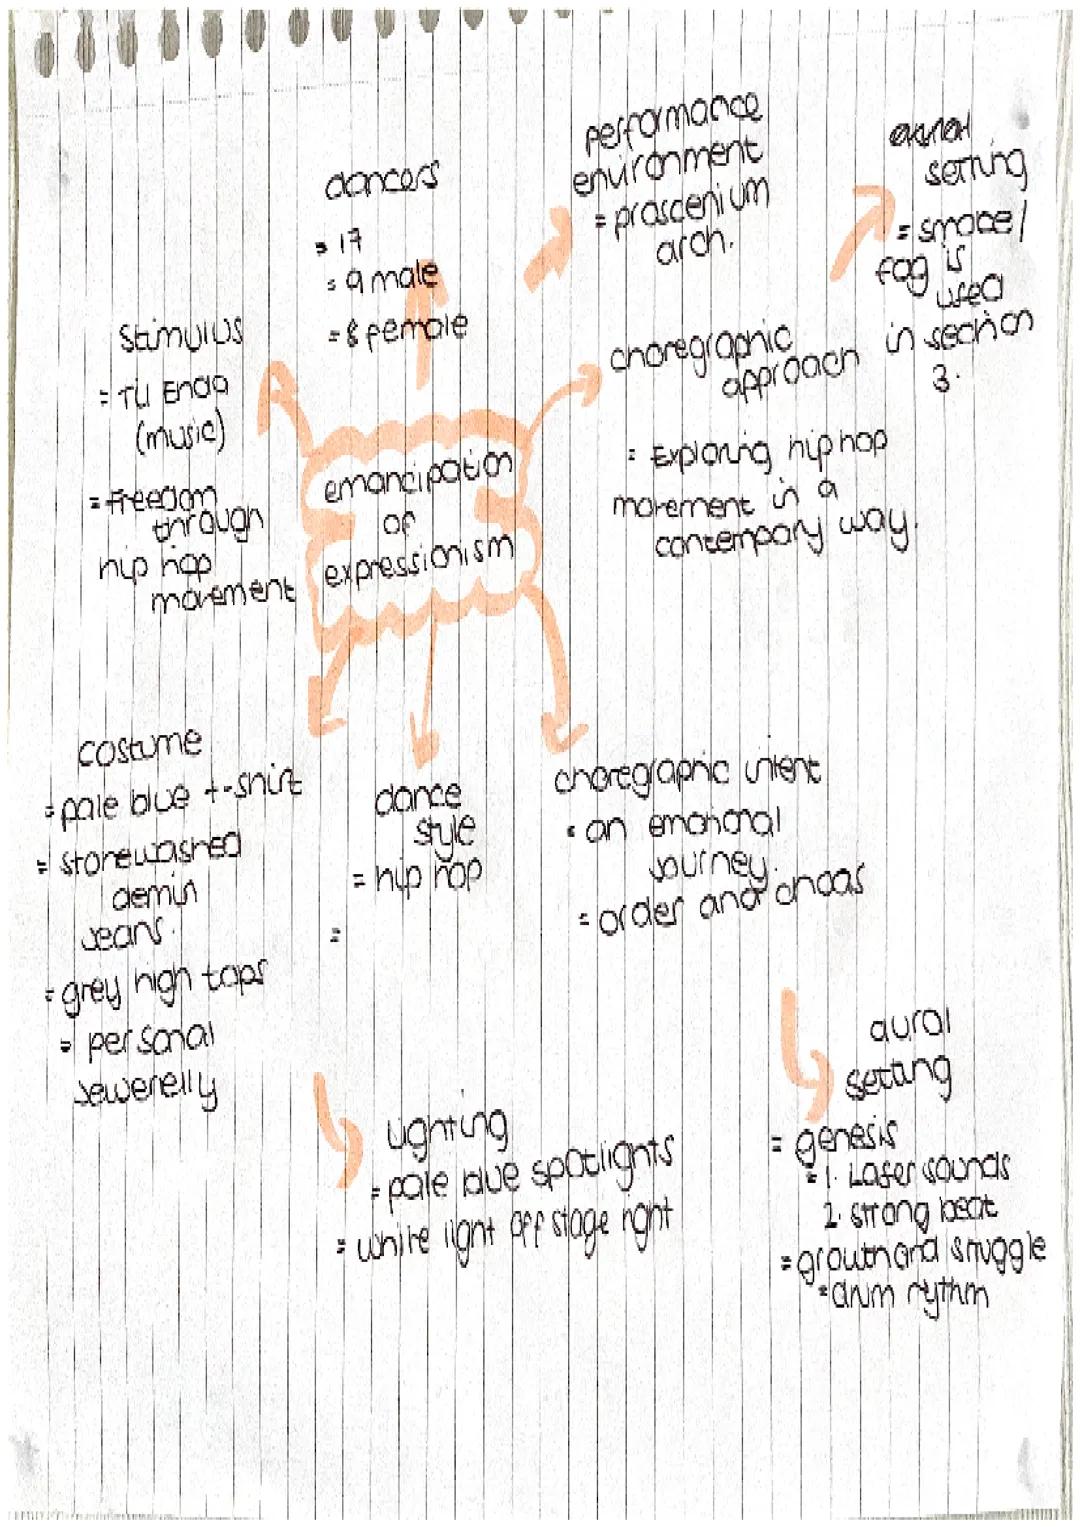 dancers
= 17
= 9 male
= 8 female
performance
environment
= proscenium
arch.
setting
= smoce/
fog is
used
in section
3.
stimulus
= Til Enda
(music)
= freedom
through
hip hop
movement
emancipation
of
expressionism
choregraphic
approach
= Exploring hip hop
movement in a
contempory way.
costume
= pale blue t-shirt
= stonewashed
demin
jeans.
= grey high tops
= personal
jewerelly
dance
style
= hip hop
=
choregraphic intent
= an emotional
journey.
= order and choas
lighting
= pale blue spotlights
= white light off stage right
aural
setting
= genesis
= 1. Laser sounds
2. strong beat
= growth and struggle
= drum rythm